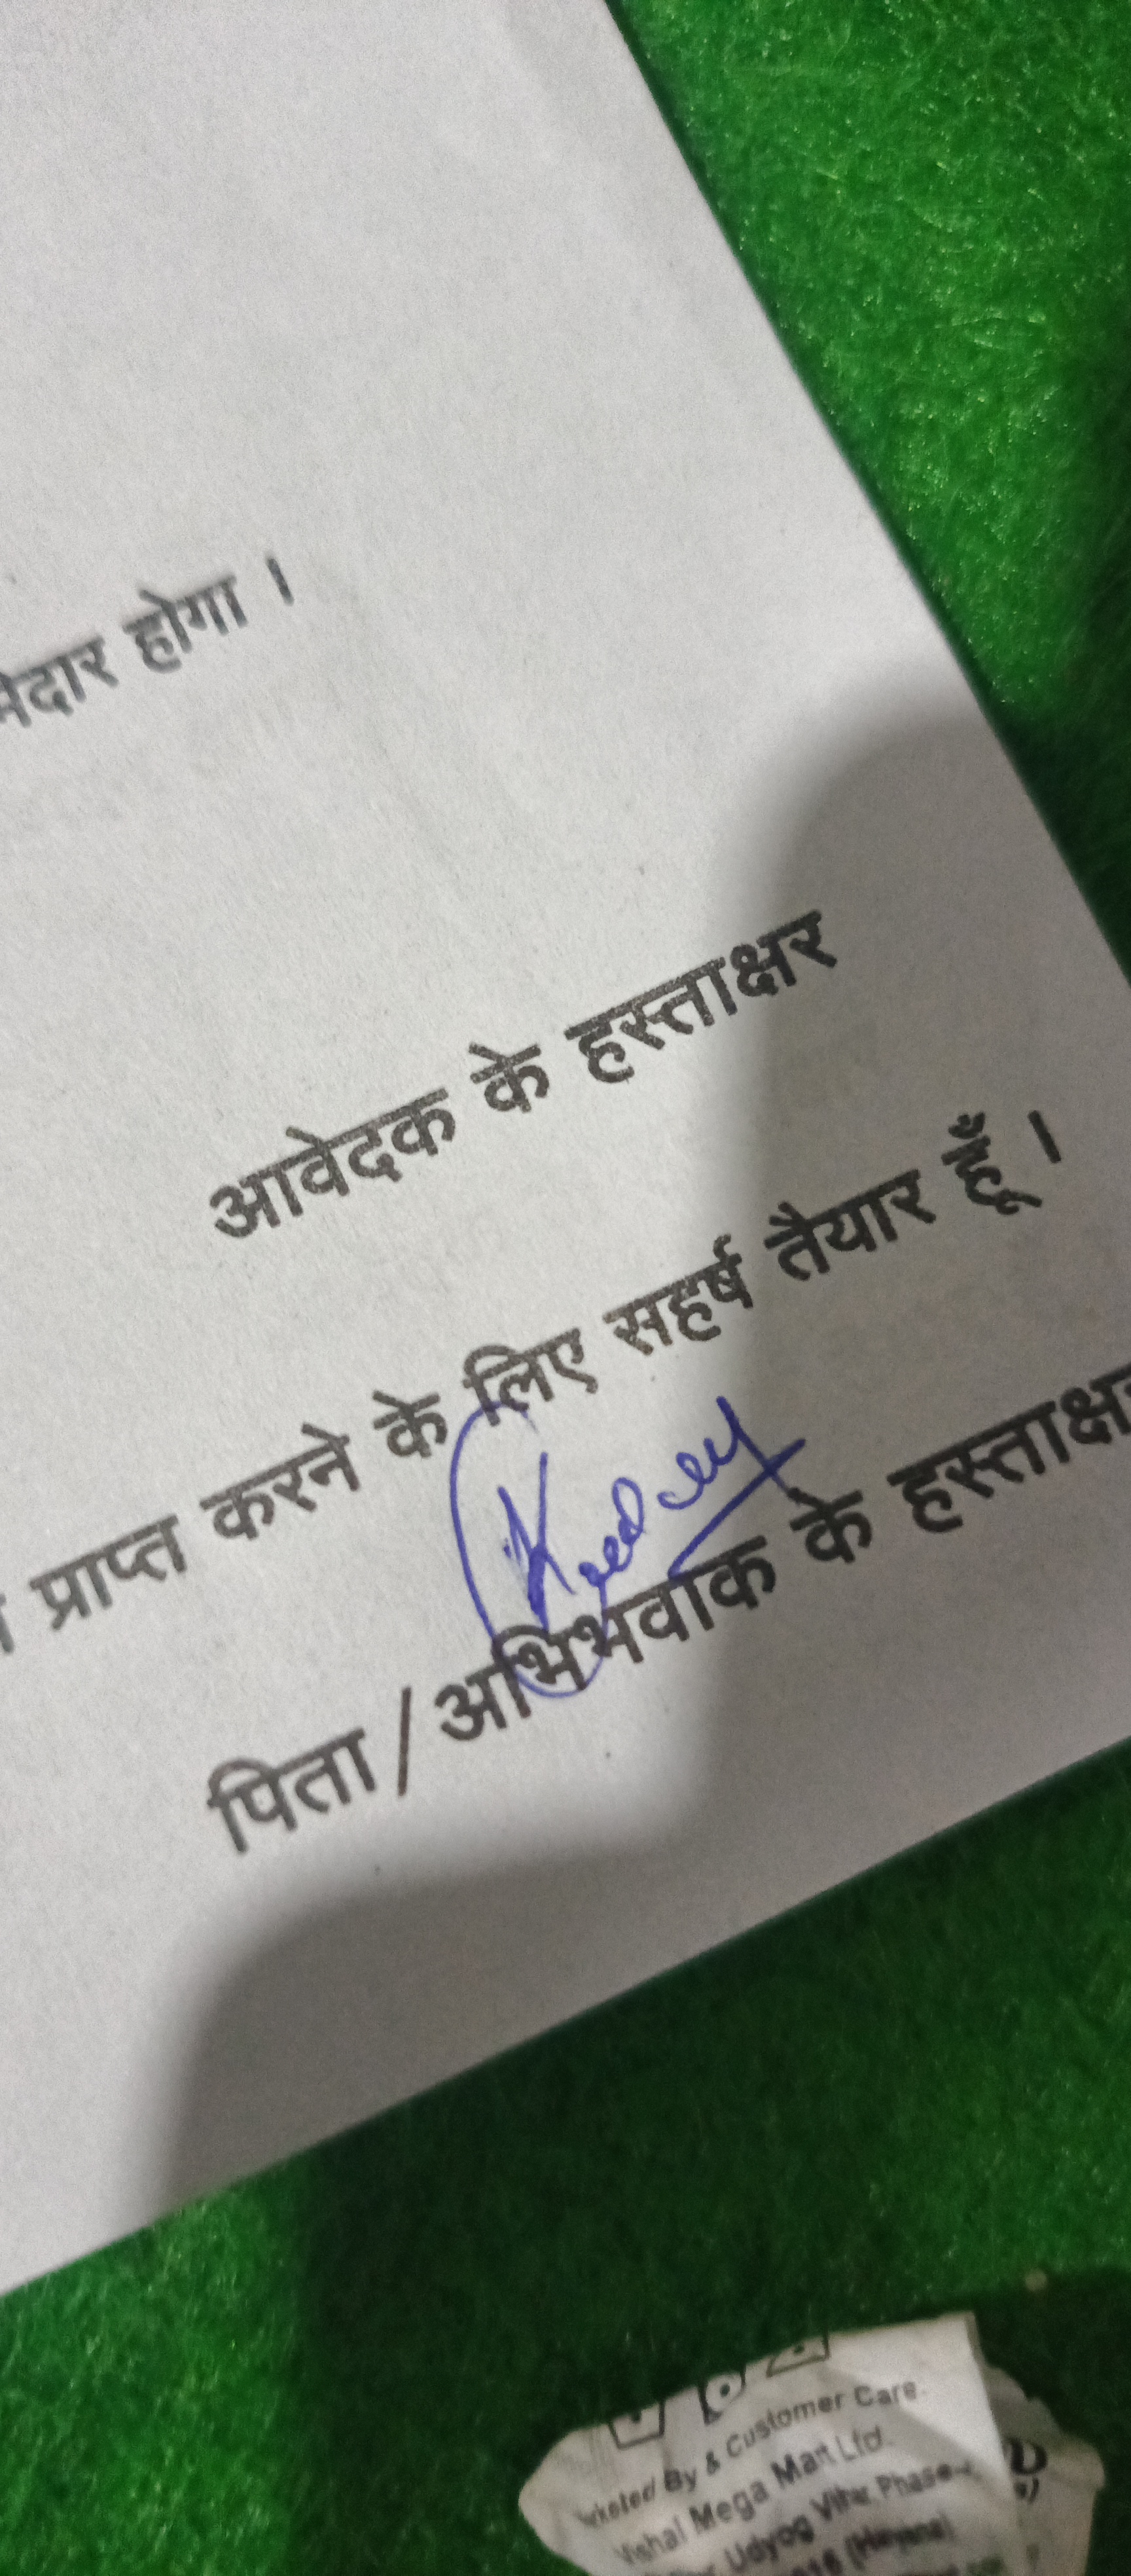 होगा ।
आवेदक के हस्ताक्षर
प्राप्त करने के लिए सहर्ष तैयार हूँ ।
पिता / अभिभवाक के हस्ताक्षर
By & Customer Care.
Vishal Mega Mart Ltd.
Udyog Vihar Phase-
(Haryana)